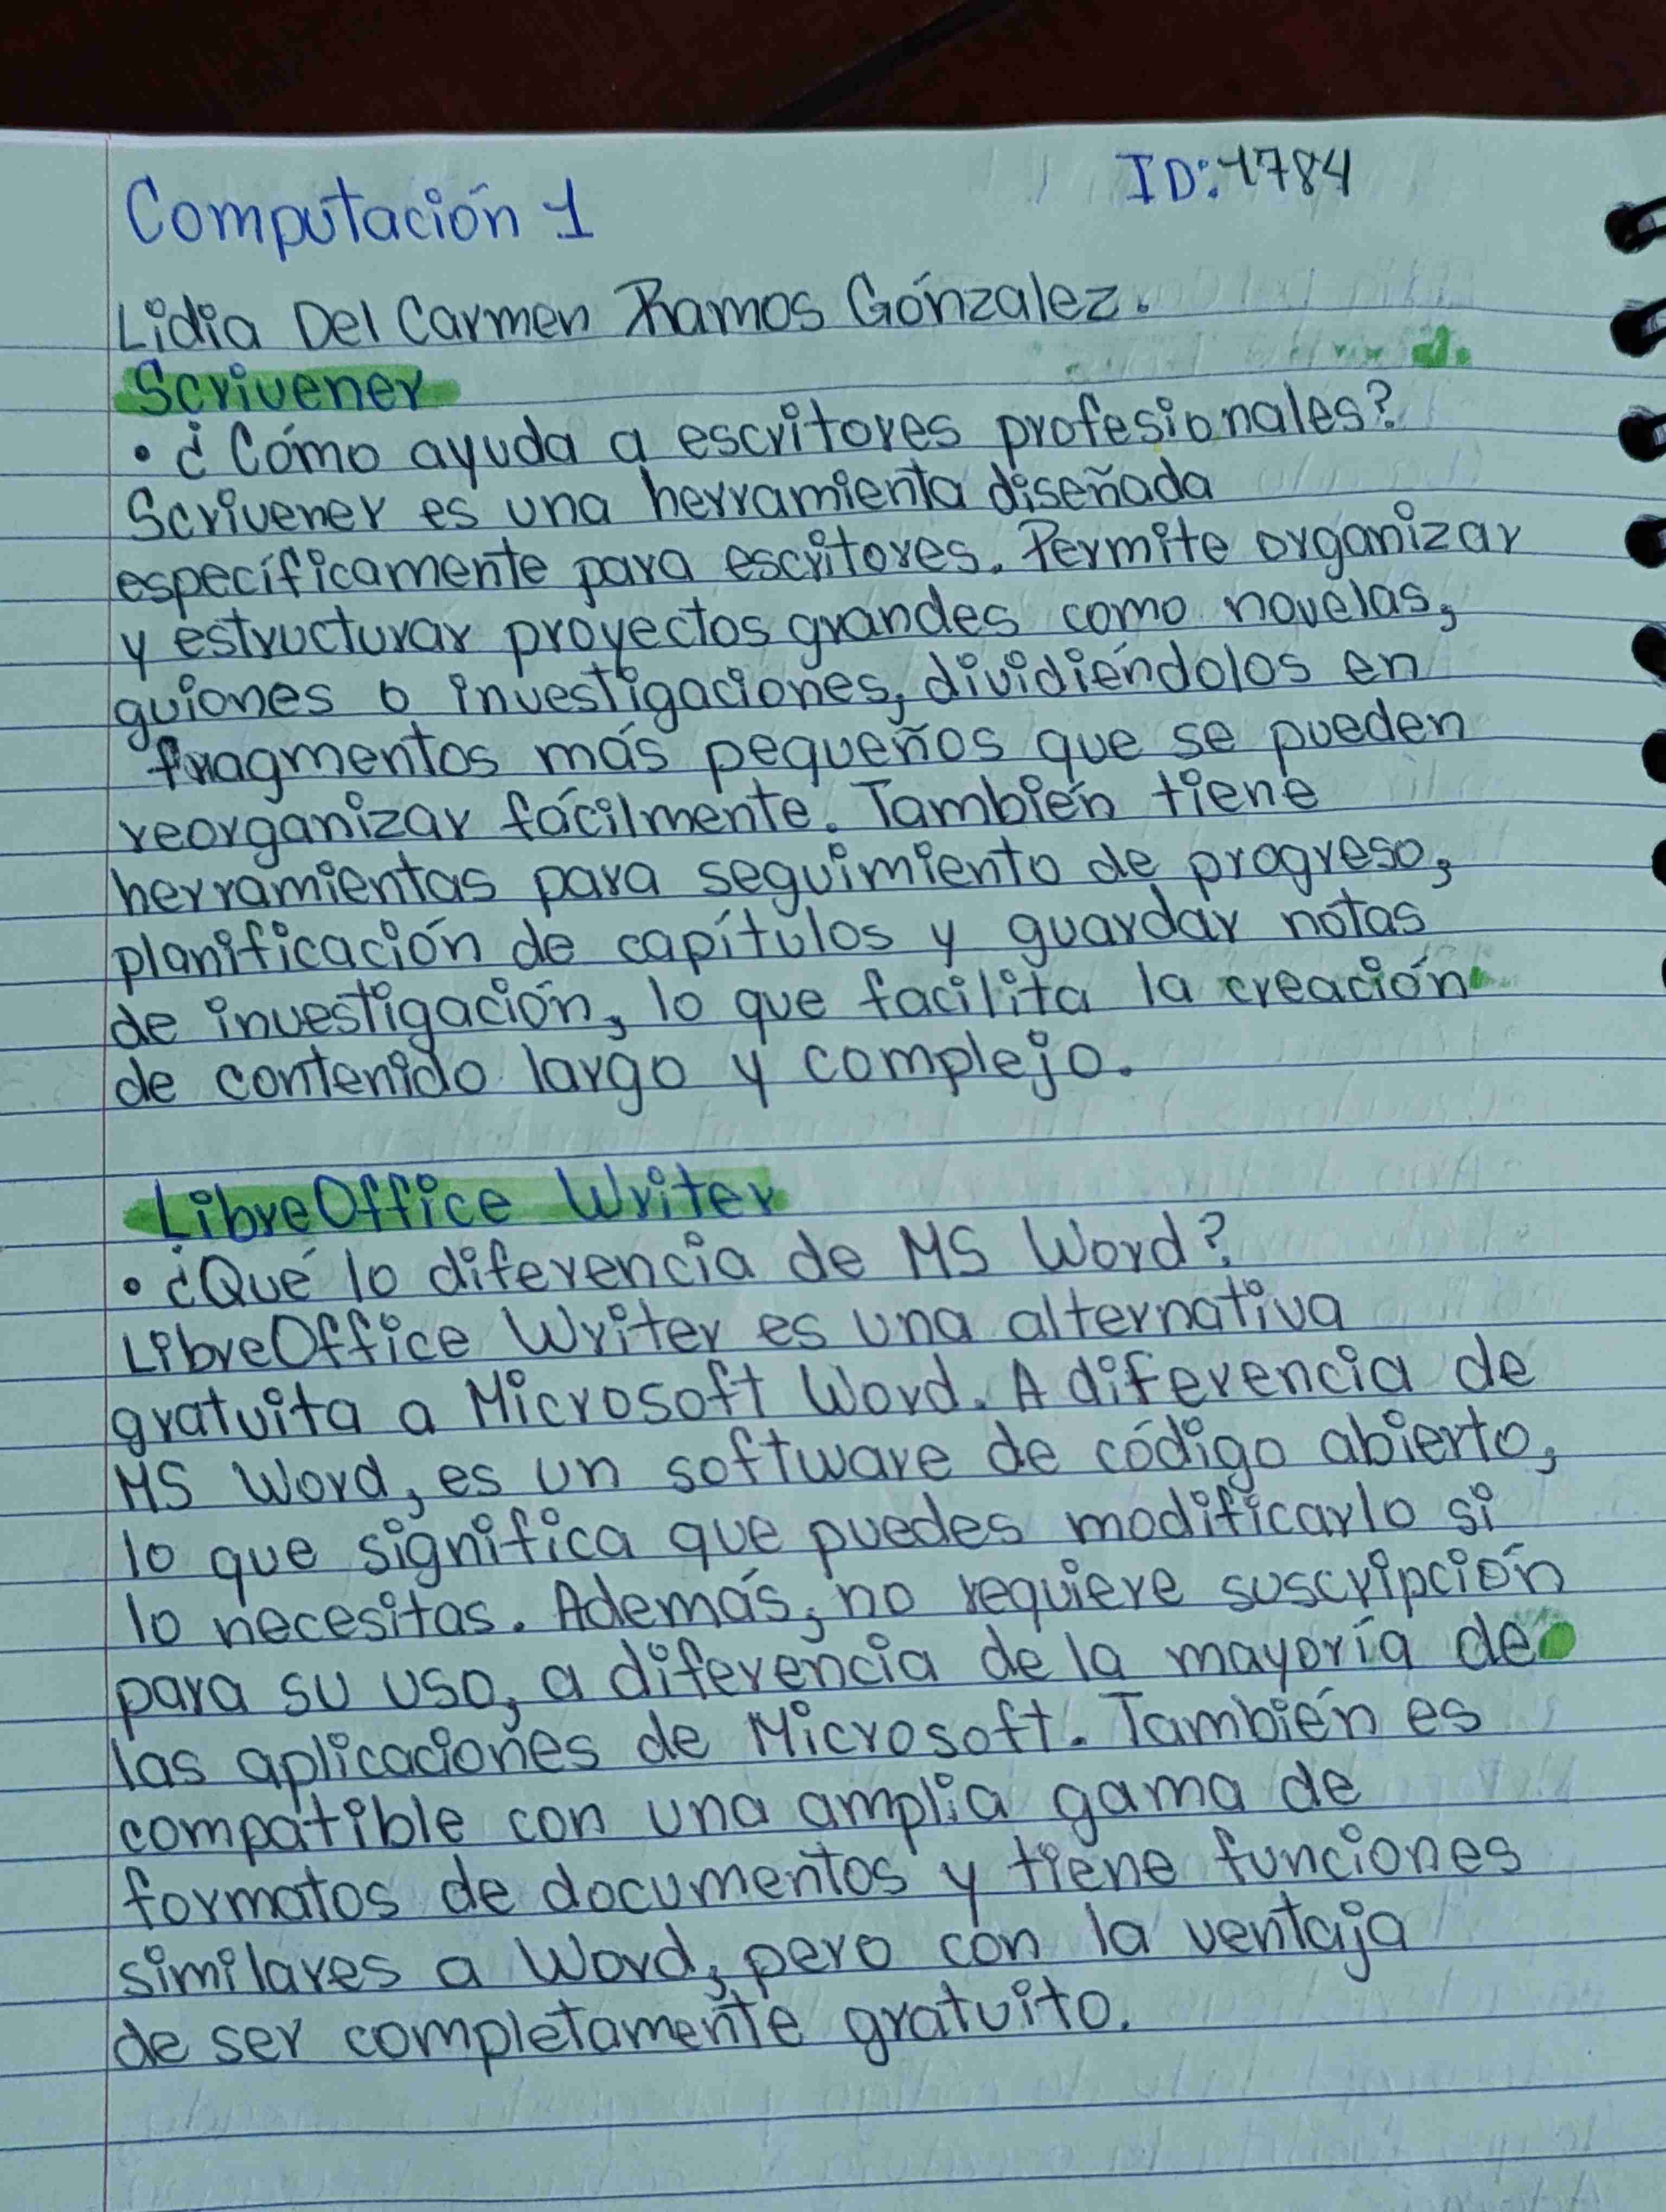 Computación 1
ID: 1784
Lidia Del Carmen Ramos Gónzalez.
Scrivener
• ¿Cómo ayuda a escritores profesionales?
Scrivener es una herramienta diseñada
específicamente para escritores. Permite organizar
y estructurar proyectos grandes como novelas,
guiones o investigaciones, dividiéndolos en
fragmentos más pequeños que se pueden
reorganizar fácilmente. También tiene
herramientas para seguimiento de progreso,
planificación de capítulos y guardar notas
de investigación, lo que facilita la creación
de contenido largo y complejo.
LibreOffice Writer
• ¿Qué lo diferencia de MS Word?
LibreOffice Writer es una alternativa
gratuita a Microsoft Word. A diferencia de
MS Word, es un software de código abierto,
lo que significa que puedes modificarlo si
lo necesitas. Además, no requiere suscripción
para su uso, a diferencia de la mayoría de
las aplicaciones de Microsoft. También es
compatible con una amplia gama de
formatos de documentos y tiene funciones
similares a Word, pero con la ventaja
de ser completamente gratuito.